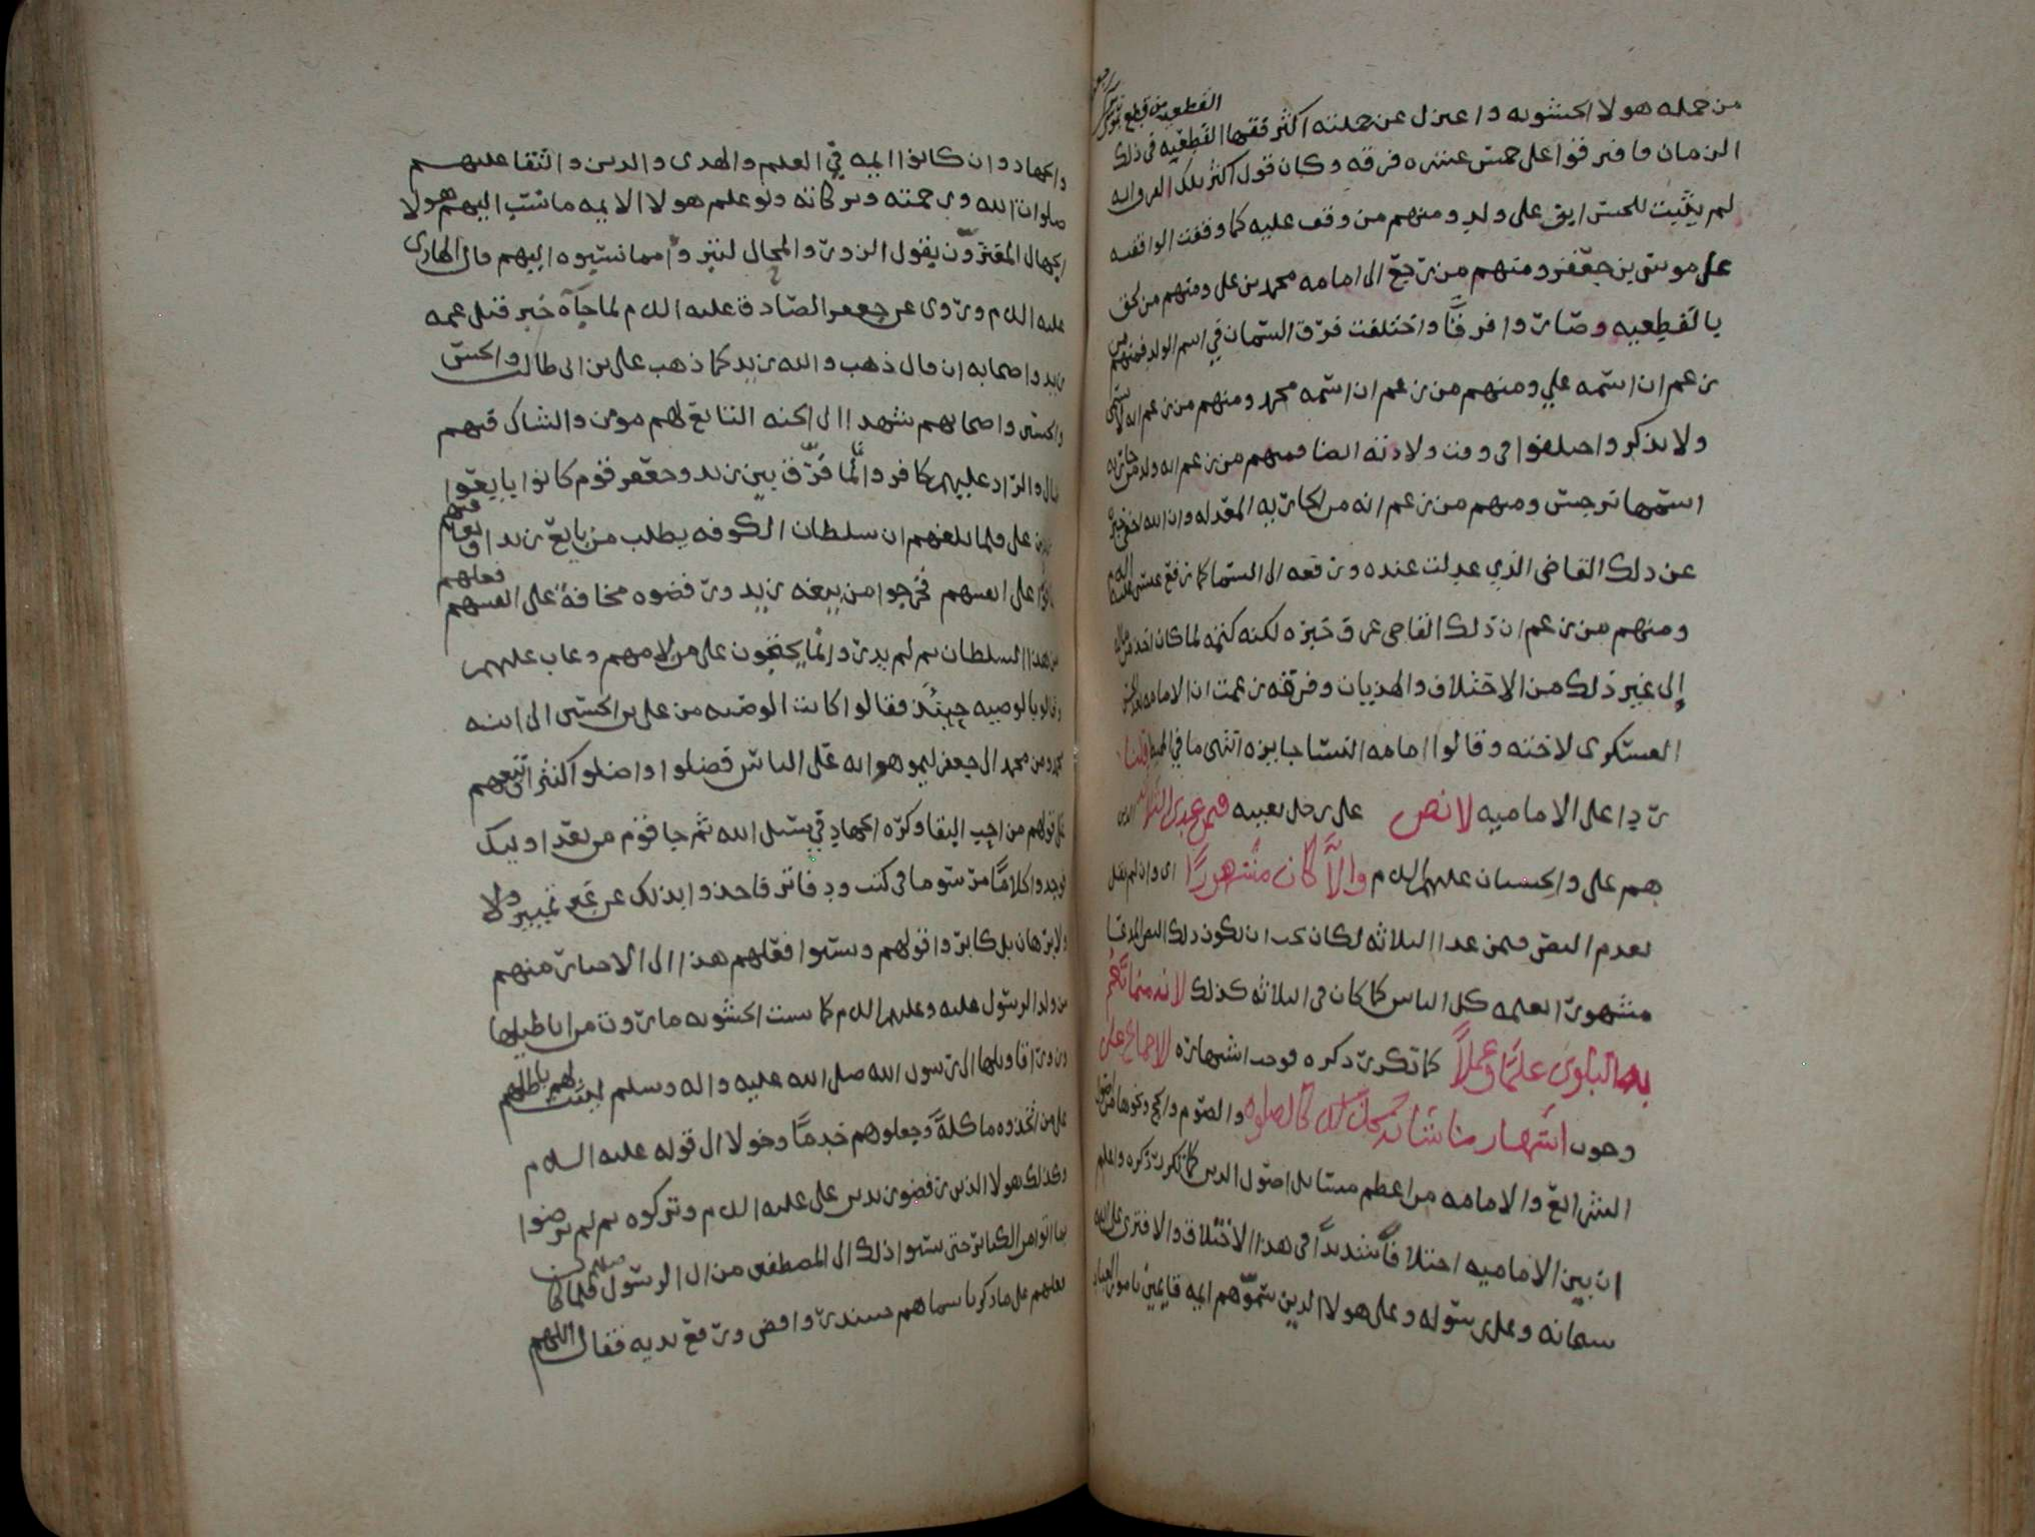 القطعيه من قطع بموت
من جمله هولا الحشويه واعتزل عن جملته اكثر فقها القطعيه في ذلك
الزمان وافترقوا على خمس عشره فرقه وكان قول اكثر تلك الفرق انه
لم يثبت للحسن ابن علي ولد ومنهم من وقف عليه كما وقفت الواقفيه
على موسى بن جعفر ومنهم من رجع الى امامه محمد بن علي ومنهم من لحق
بالقطيعيه وصاروا فرقًا واختلفت فرق السمان في اسم الولد فمنهم من
زعم ان اسمه علي ومنهم من زعم ان اسمه محمد ومنهم من زعم انه لا يسمى
ولا يذكر واختلفوا في وقت ولادته ايضا فمنهم من زعم انه ولد من جاريه
اسمها نرجس ومنهم من زعم انه من الجاريه المعدله وان الله اخفى خبره
عن ذلك القاضي الذي عدلت عنده ورفعه الى السما كما رفع عيسى عليه السلم
ومنهم من زعم ان ذلك القاضي عرف خبره لكنه كتمه لما كان اخذ من مال
إلى غير ذلك من الاختلاف والهذيان وفرقه زعمت ان الامامه بعد الحسن
العسكري لاخته وقالوا امامه النسا جايزه انتهى ما في المحيط قلنا
ردا على الاماميه لا نص على رجل بعينه فيمن عدى الثلاثه الذين
هم علي والحسنان عليهم السلم والَّا كان مشهورًا اي وان لم نقل
بعدم النص فيمن عدا الثلاثه لكان يجب ان يكون ذلك النص المدعا
مشهورًا يعلمه كل الناس كما كان في الثلاثه كذلك لانه مما تعم
به البلوى علمًا وعملاً كما تكرر ذكره فوجب اشتهاره للاجماع على
وجوب اشتهار ما شانه كذلك كالصلوه والصوم والحج ونحوها من اصول
الشرائع والامامه من اعظم مسائل اصول الدين كما تكرر ذكره واعلم
ان بين الاماميه اختلافًا شديدًا في هذا الاختلاف والافترى على الله
سبحانه وعلى رسوله وعلى هولا الذين سموهم ايمه قايمين بامور العباد
والجهاد وان كانوا ايمه في العلم والهدى والدين والتقا عليهم
صلوات الله ورحمته وبركاته ولو علم هولا الايمه ما نسب اليهم هولا
الجهال المغترون بقول الزور والمحال لتبروا مما نسبوه اليهم قال الهادي
عليه السلم وروي عن جعفر الصادق عليه السلم لما جآه خبر قتل عمه
زيد واصحابه ان قال ذهب والله زيد كما ذهب علي بن ابي طالب والحسن
والحسين واصحابهم شهدا الى الجنه التابع لهم مومن والشاك فيهم
ضال والراد عليهم كافر وانما فرق بين زيد وجعفر قوم كانوا بايعوا
زيد بن علي فلما بلغهم ان سلطان الكوفه يطلب من بايع زيدا ويعاقبهم
خافوا على انفسهم فخرجوا من بيعه زيد ورفضوه مخافةً على انفسهم
من هذا السلطان ثم لم يدروا بما يحتجون على من لامهم وعاب عليهم فعلهم
وقالوا بالوصيه حينئذ فقالوا كانت الوصيه من علي بن الحسين الى ابنه
محمد ومن محمد الى جعفر ليموهوا به على الناس فضلوا واضلوا كثيرا تبعهم
على قولهم من احب البقا وكره الجهاد في سبيل الله ثم جا قوم من بعد اوليك
فوجدوا كلامًا مرسوما في كتب ودفاتر فاخذوا بذلك عن غير تمييز ولا
ولا برهان بل كابروا قولهم ونسبوا فعلهم هذا الى الاخيار منهم
من ولد الرسول عليه وعليهم السلم كما نسبت الحشويه ما روت من اباطيلها
وزور اقاويلها الى رسول الله صلى الله عليه واله وسلم ليثبت لهم باطلهم
على من اتخذوه ماكلةً وجعلوهم خدمًا وخولا الى قوله عليه السلام
وكذلك هولا الذين رفضوا زيد بن علي عليه السلم وتركوه ثم لم يرضوا
بما اتوا من الكبائر حتى نسبوا ذلك الى المصطفين من ال الرسول صلعم فلما كان
فعلهم على ما ذكرنا سماهم حينئذ روافض ورفع يديه فقال اللهم